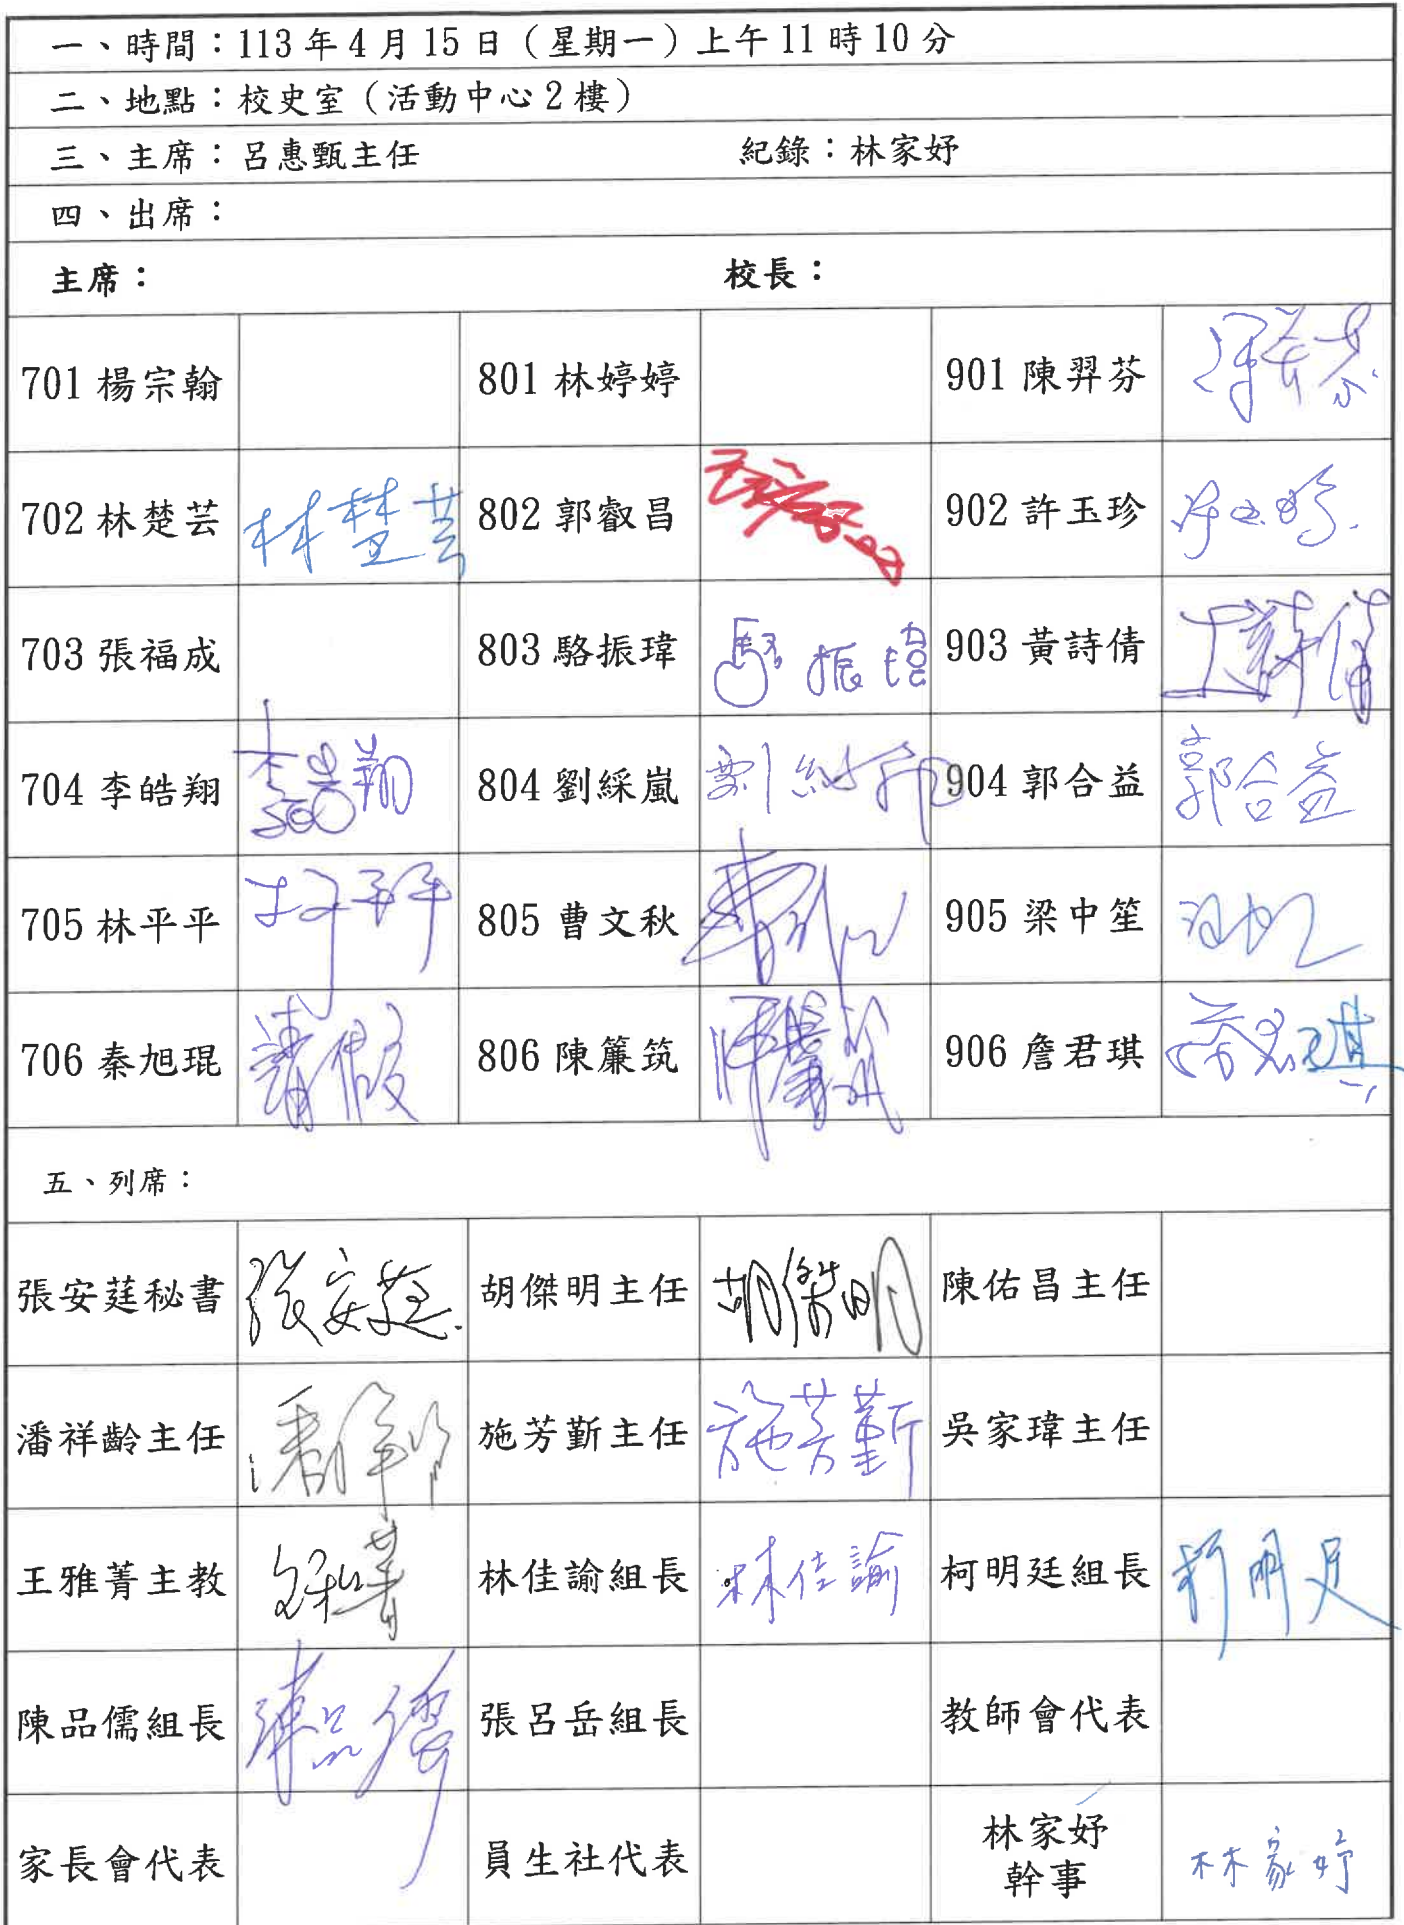 一、時間：113年4月15日（星期一）上午11時10分
二、地點：校史室（活動中心2樓）
三、主席：呂惠甄主任 紀錄：林家妤
四、出席：
主席： 校長：
701楊宗翰 801林婷婷 901陳羿芬
702林楚芸 林楚芸 802郭叡昌 902許玉珍
703張福成 803駱振瑋 駱振瑋 903黃詩倩
704李皓翔 李皓翔 804劉綵嵐 904郭合益 郭合益
705林平平 林平平 805曹文秋 905梁中笙
706秦旭琨 請假 806陳簾筑 906詹君琪
五、列席：
張安莛秘書 張安莛 胡傑明主任 胡傑明 陳佑昌主任
潘祥齡主任 施芳勤主任 施芳勤 吳家瑋主任
王雅菁主教 林佳諭組長 林佳諭 柯明廷組長
陳品儒組長 陳品儒 張呂岳組長 教師會代表
家長會代表 員生社代表 林家妤 林家妤
幹事